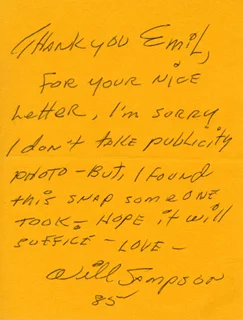 THANK YOU EMIL,
FOR YOUR NICE
Letter, I'm SORRY
I don't take publicity
PHOTO - BUT, I found
this SNAP someONE
TOOK - HOPE it will
SUFFICE - LOVE -
Will SAMPSON
85